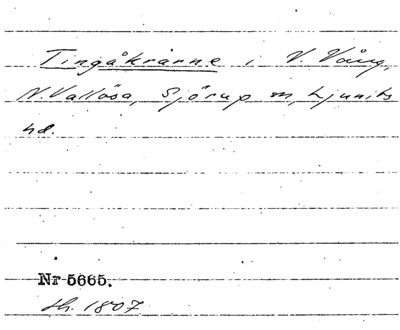 Tingåkrarne i V. Vång,
N. Vallösa, Sjörup sn, Ljunits
hd.
Nr 5665.
sk. 1807